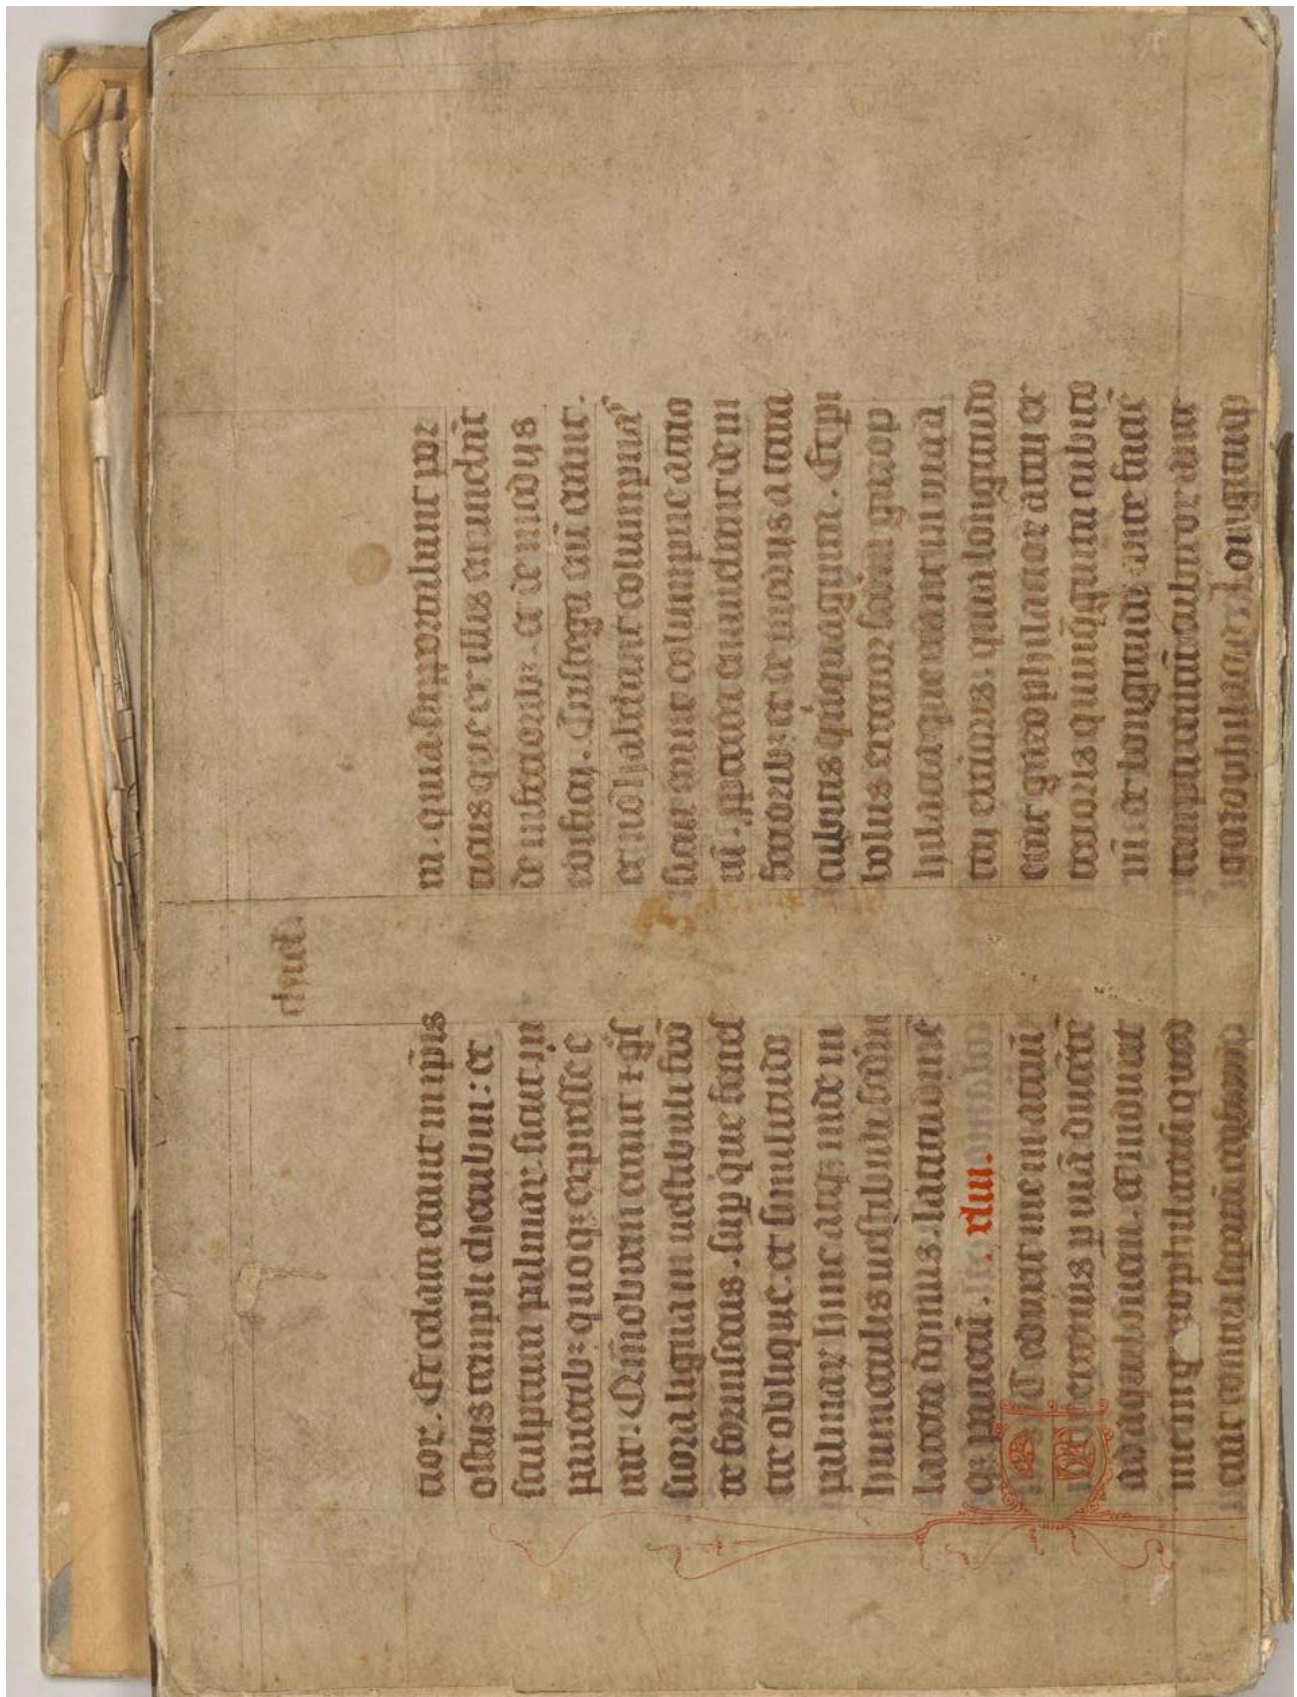 chiel
tior. Et celata erant in ipis
ostiis templi cherubin: et
sculpture palmar: sicut in
parietib; quoq; expresse e
rant. Qmobrem erant et gſ
siora ligna in vestibuli frō
te forinsecus. sup que fenes
tre oblique. et similitudo
palmar hinc atq; inde in
humerulis vestibuli scdm
latera domus. latitudinē
q; parietū. xlii.
Et eduxit me in atriū
exterius p viā ducētē
ad aquilonem. et introduxit
me in gazophilatiū quod
erat contra sepatū edificiū
m. quia supportabant por
ticus que ex illis eminebāt
de inferiorib; et de mediis
edificii. Tristega enī erant.
et nō habebant columpnas
sicut erant columpne atrio
rū. ppterea eminebant de in
feriorib; et de mediis a terra
cubitis qiquaginta. Et pi
bolus exterior scdm gazop
hilacia que erant in via a
trii exterioris. quia longitudo
erat gazophilacior atrii ex
terioris quinqginta cubito
rū et longitudo ante faciē